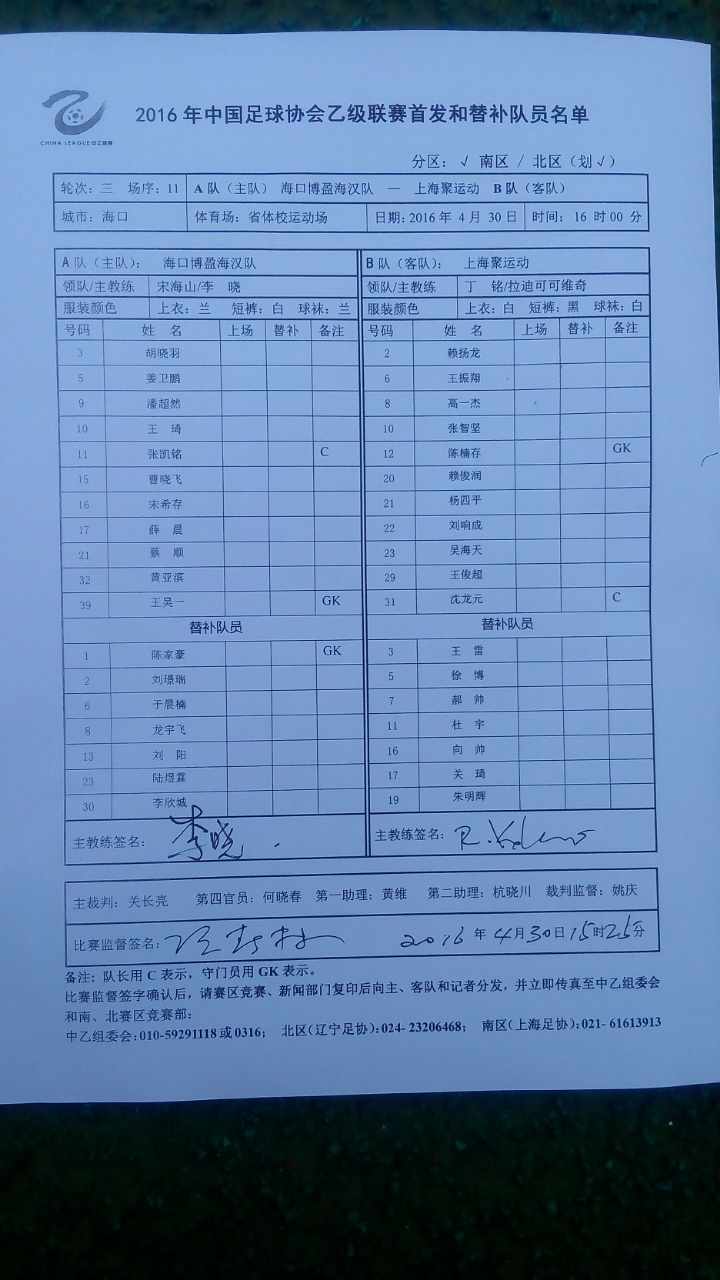 CHINA LEAGUE 中乙联赛
2016年中国足球协会乙级联赛首发和替补队员名单
分区：√ 南区 / 北区（划√）
轮次：三 场序：11 A队（主队） 海口博盈海汉队 — 上海聚运动 B队（客队）
城市：海口 体育场：省体校运动场 日期：2016年 4月 30日 时间：16时00分
A队（主队）： 海口博盈海汉队 B队（客队）： 上海聚运动
领队/主教练 宋海山/李 晓 领队/主教练 丁 铭/拉迪可可维奇
服装颜色 上衣：兰 短裤：白 球袜：兰 服装颜色 上衣：白 短裤：黑 球袜：白
号码 姓 名 上场 替补 备注 号码 姓 名 上场 替补 备注
3 胡晓羽 2 赖扬龙
5 姜卫鹏 6 王振翔
9 潘超然 8 高一杰
10 王 琦 10 张智坚
11 张凯铭 C 12 陈楠存 GK
15 曹晓飞 20 赖俊润
16 宋希存 21 杨四平
17 薛 晨 22 刘响成
21 蔡 顺 23 吴海天
32 黄亚滨 29 王俊超
39 王吴一 GK 31 沈龙元 C
替补队员 替补队员
1 陈家豪 GK 3 王 雷
2 刘璟瑞 5 徐 博
6 于晨楠 7 郝 帅
8 龙宇飞 11 杜 宇
13 刘 阳 16 向 帅
23 陆煜霖 17 关 琦
30 李欣城 19 朱明辉
主教练签名：李晓 主教练签名：
主裁判：关长亮 第四官员：何晓春 第一助理：黄维 第二助理：杭晓川 裁判监督：姚庆
比赛监督签名： 2016年4月30日15时25分
备注：队长用C表示，守门员用GK表示。
比赛监督签字确认后，请赛区竞赛、新闻部门复印后向主、客队和记者分发，并立即传真至中乙组委会
和南、北赛区竞赛部：
中乙组委会：010-59291118或0316； 北区（辽宁足协）：024- 23206468； 南区（上海足协）：021- 61613913